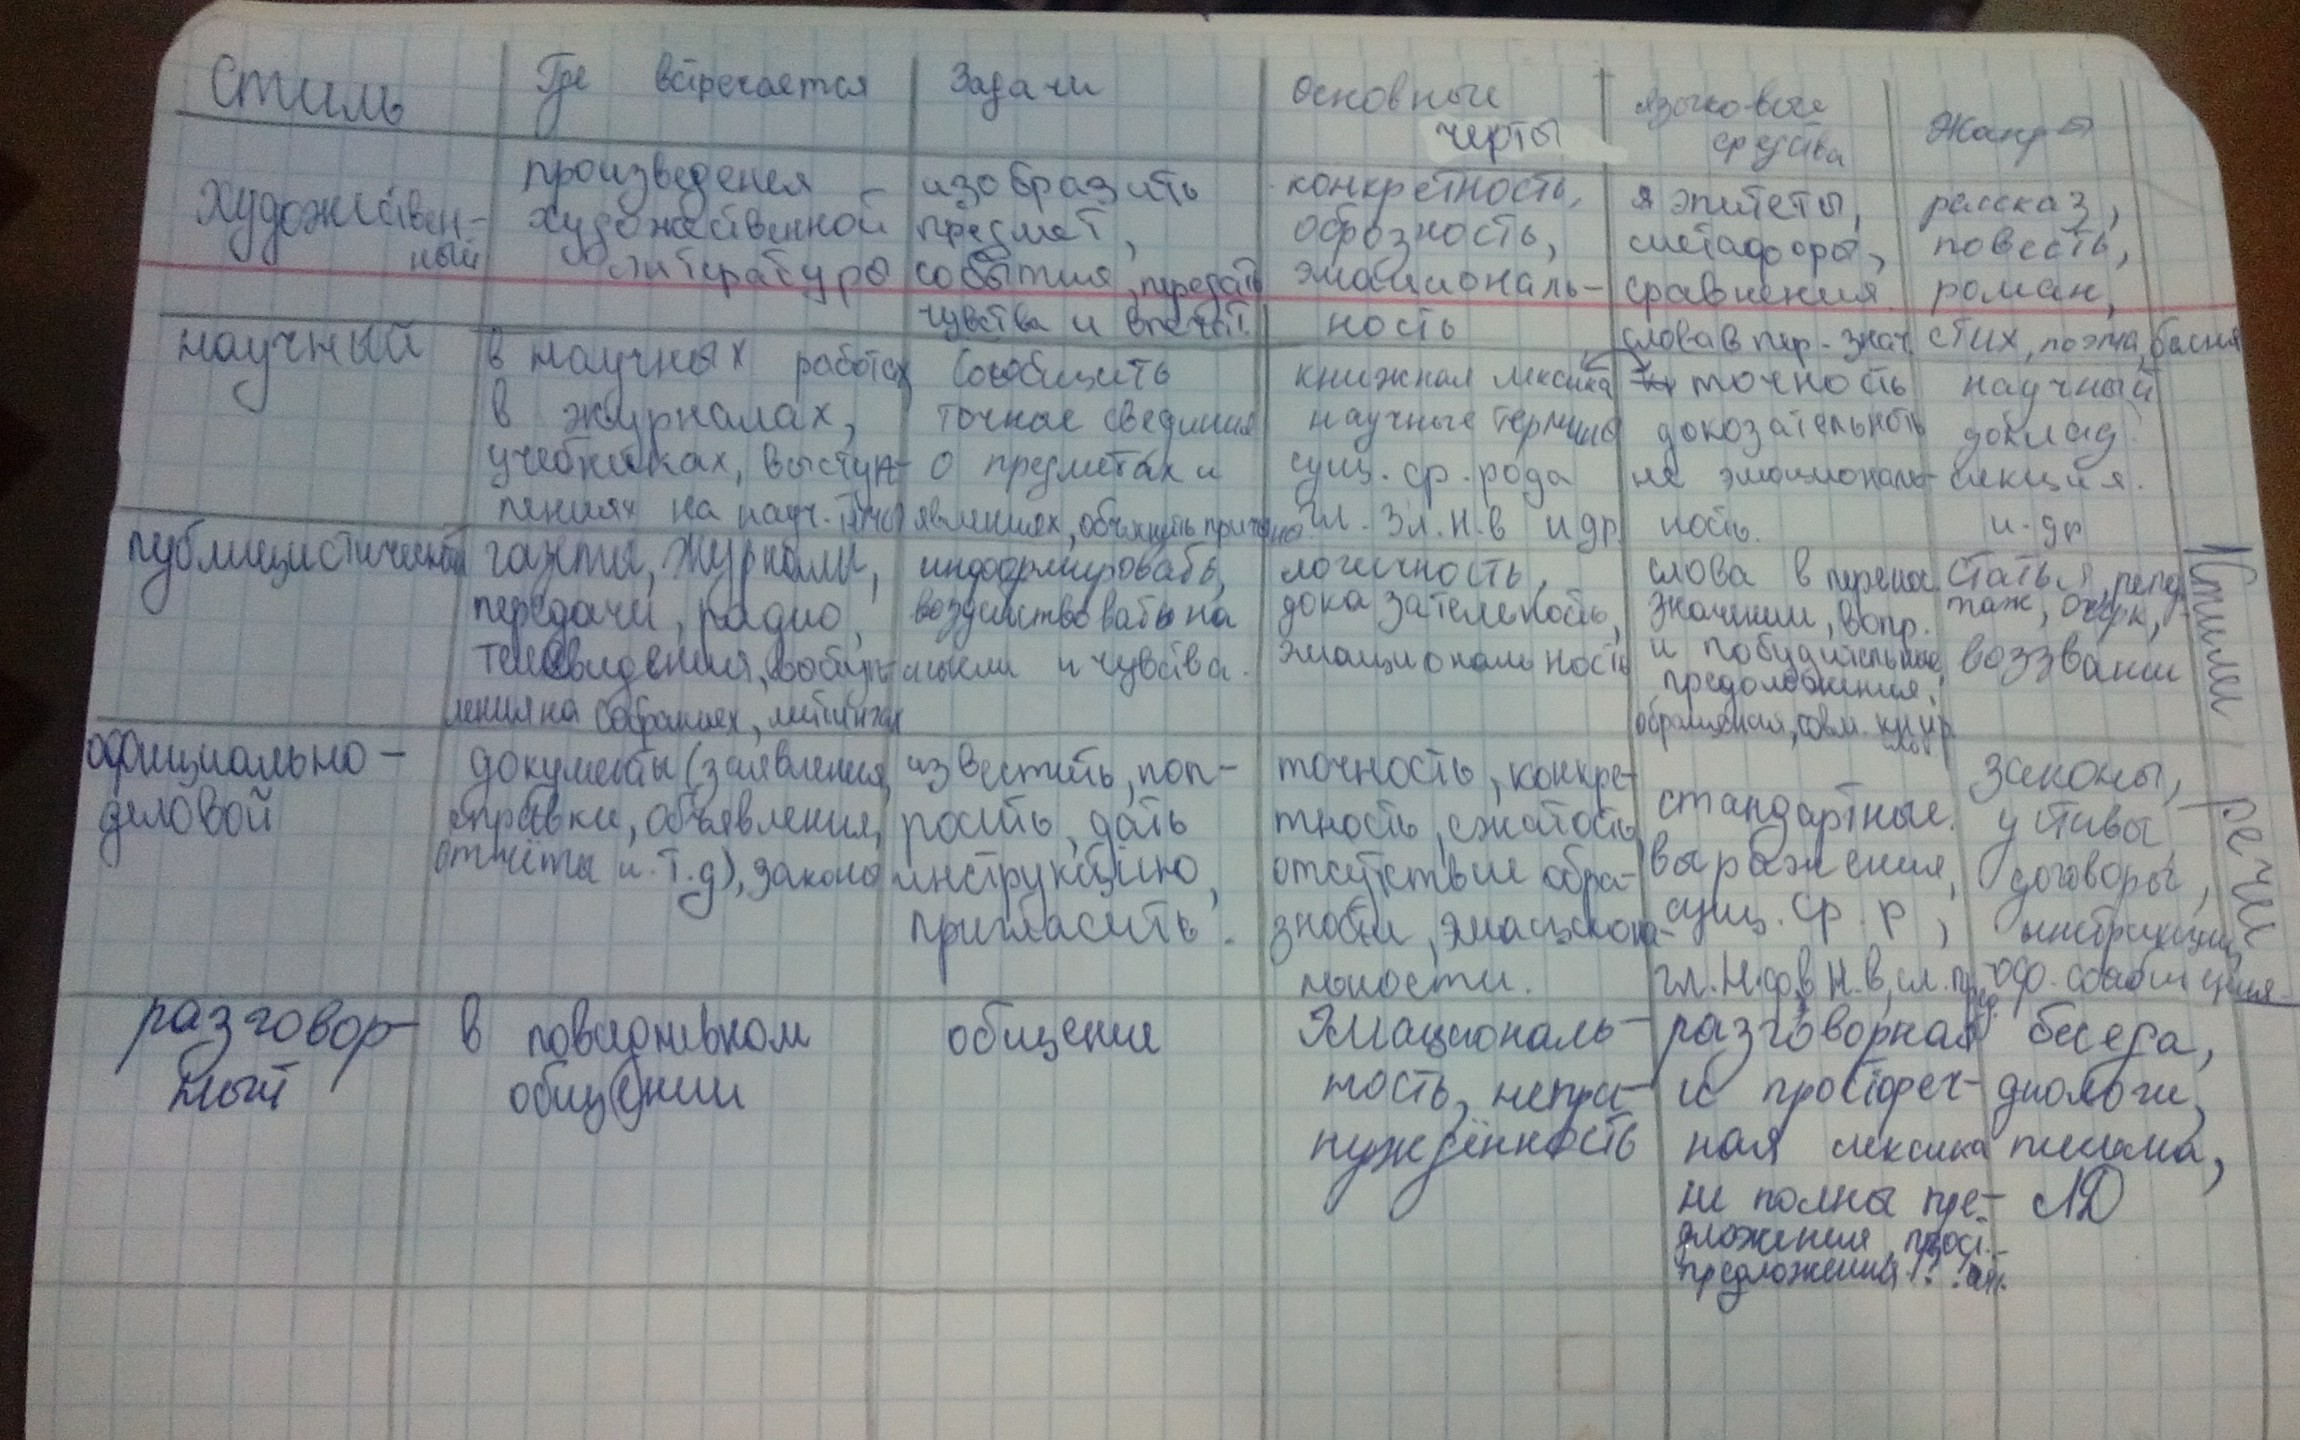 Стиль
Где встречается
Задачи
Основные
черты
языковые
средства
Жанры
художествен-
ный
произведения
художественной
литературы
изобразить
предмет,
события, передать
чувства и впечат.
конкретность,
оброзность,
эмациональ-
ность
я эпитеты,
метафоры,
сравнения
слова в пер. знач.
рассказ,
повесть,
роман,
стих, поэма, басня
научный
в научных работах
в журналах,
учебниках, выступ-
лениях на науч.
Сообщить
точное сведения
о предметах и
явлениях, объяснить
книжная лексика
научные термины
сущ. ср. рода
гл. 3л. н.в и др.
точность
докозательность
не эмоциональ-
ность.
научный
доклад
лекция.
и др
публицистический
газеты, журналы,
передачи, радио,
телевидения,
ления на собраниях, митингах
информировать,
воздействовать на
мысли и чувства.
логичность,
доказателеность,
эмациональность
слова в перенос
значении, вопр.
и побудительные
предоложения,
обращения,
Статья, репор
таж, очерк,
воззвании
официально-
деловой
документы (заявления,
справки, объявления,
отчёты и т.д), законы
известить, поп-
росить, дать
инструкцию,
пригласить.
точность, конкре-
тность, сжатость,
отсутствие обра-
зности, эмацсиона-
льности.
стандартные.
выражения,
сущ. ср. р,
гл. Н.ф,в Н.в, сл.
законы,
уставы
договоры,
инструкции,
оф. сообщения
разговор-
ный
в повседневном
общении
общение
Эмациональ-
ность, непри-
нуждённость
разговорная
и простореч-
ная лексика
не полны пре-
дложения, прост.
предложения !?
беседа,
диологи,
письма,
ЛД
Стили речи